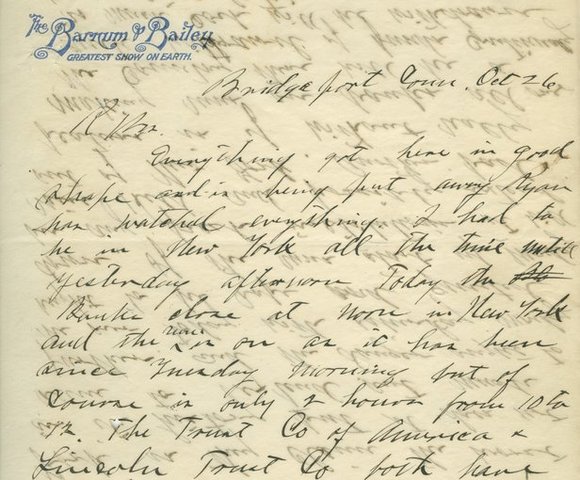 The Barnum & Bailey
GREATEST SHOW ON EARTH.
Bridgeport Conn. Oct 26
Everything got here in good
shape and is being put away Ryan
has watched everything. I had to
be in New York all the time until
yesterday afternoon Today the
Banks close at noon in New York
and the run is on as it has been
since Tuesday morning but of
course is only 2 hours from 10 to
12. The Trust Co of America &
Lincoln Trust Co both have